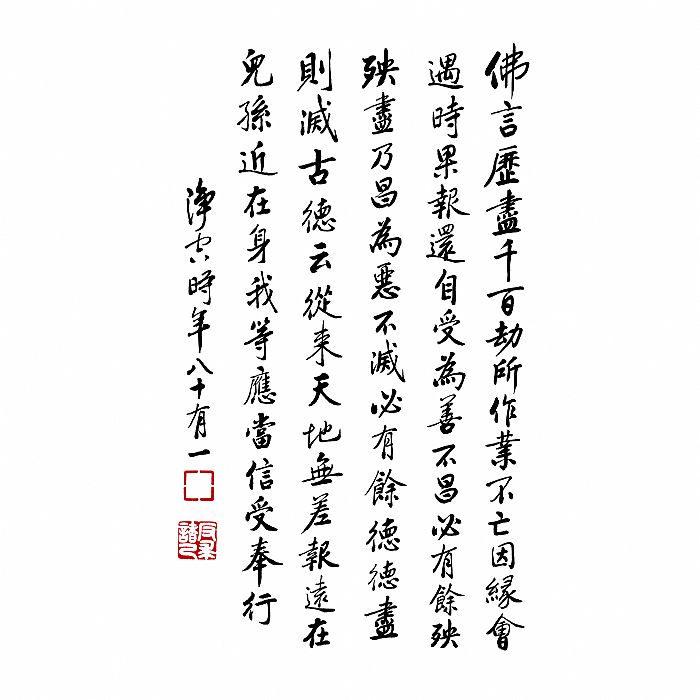 佛言歷盡千百劫所作業不亡因緣會
遇時果報還自受為善不昌必有餘殃
殃盡乃昌為惡不滅必有餘德德盡
則滅古德云從来天地無差報遠在
兒孫近在身我等應當信受奉行
淨空時年八十有一